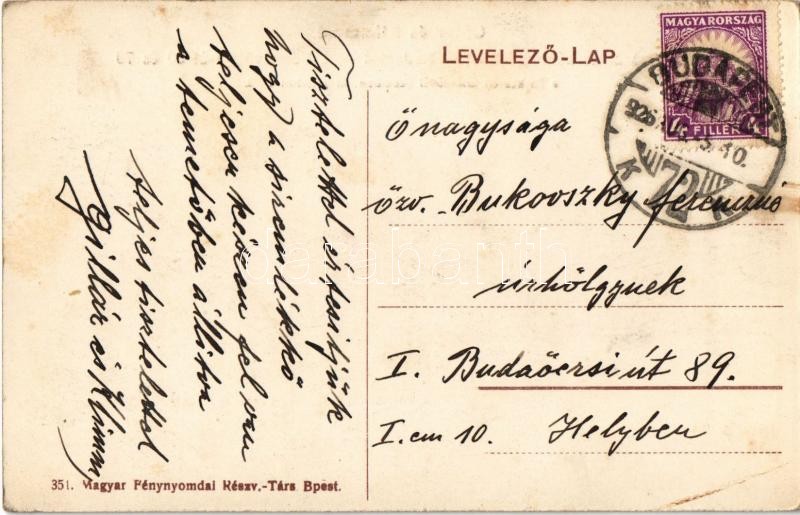 LEVELEZŐ-LAP
MAGYARORSZÁG
FILLÉR
BUDAPEST
72
Tisztelettel értesitjük
hogy a siremlékkő
teljesen készen fel van
a temetőben állitva
teljes tisztelettel
Gillár és Klimm
Őnagysága
özv. Bukovszky Ferencné
úrhölgynek
I. Budaörsi út 89.
I. em 10. Helyben
351. Magyar Fénynyomdai Részv.-Társ Bpest.
darabanth